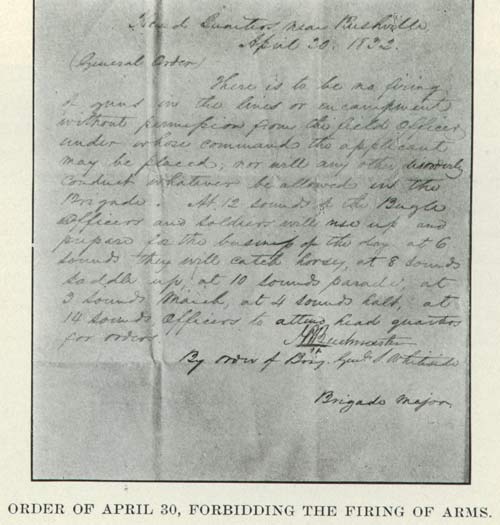 Head Quarters, near Rushville
April 30. 1832.
(General Order)
There is to be no firing
of guns in the lines or encampment
without permission from the field Officer
under whose command the applicant
may be placed; nor will any other disorderly
conduct whatever be allowed in the
Brigade. At 12 sounds of the Bugle
Officers and soldiers will rise up and
prepare for the business of the day at 6
sounds they will catch horses, at 8 sounds
saddle up, at 10 sounds parade, at
3 sounds March, at 4 sounds halt, at
14 sounds Officers to attend head quarters
for orders
By order of Brig. Genl. S. Whiteside
Brigade Major
ORDER OF APRIL 30, FORBIDDING THE FIRING OF ARMS.